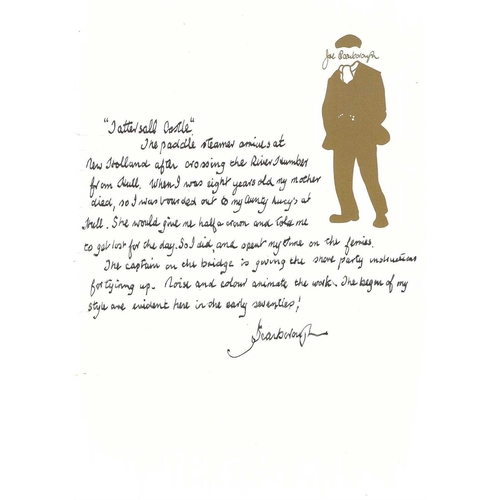 Joe Scarborough
"Tattersall Castle"
The paddle steamer arrives at
New Holland after crossing the River Humber
from Hull. When I was eight years old my mother
died, so I was boarded out to my Aunty Lucy's at
Hull. She would give me half a crown and told me
to get lost for the day. So I did, and spent my time on the ferries.
The captain on the bridge is giving the shore party instructions
for tying up. Noise and colour animate the work. The begin of my
style are evident here in the early seventies!
JScarborough